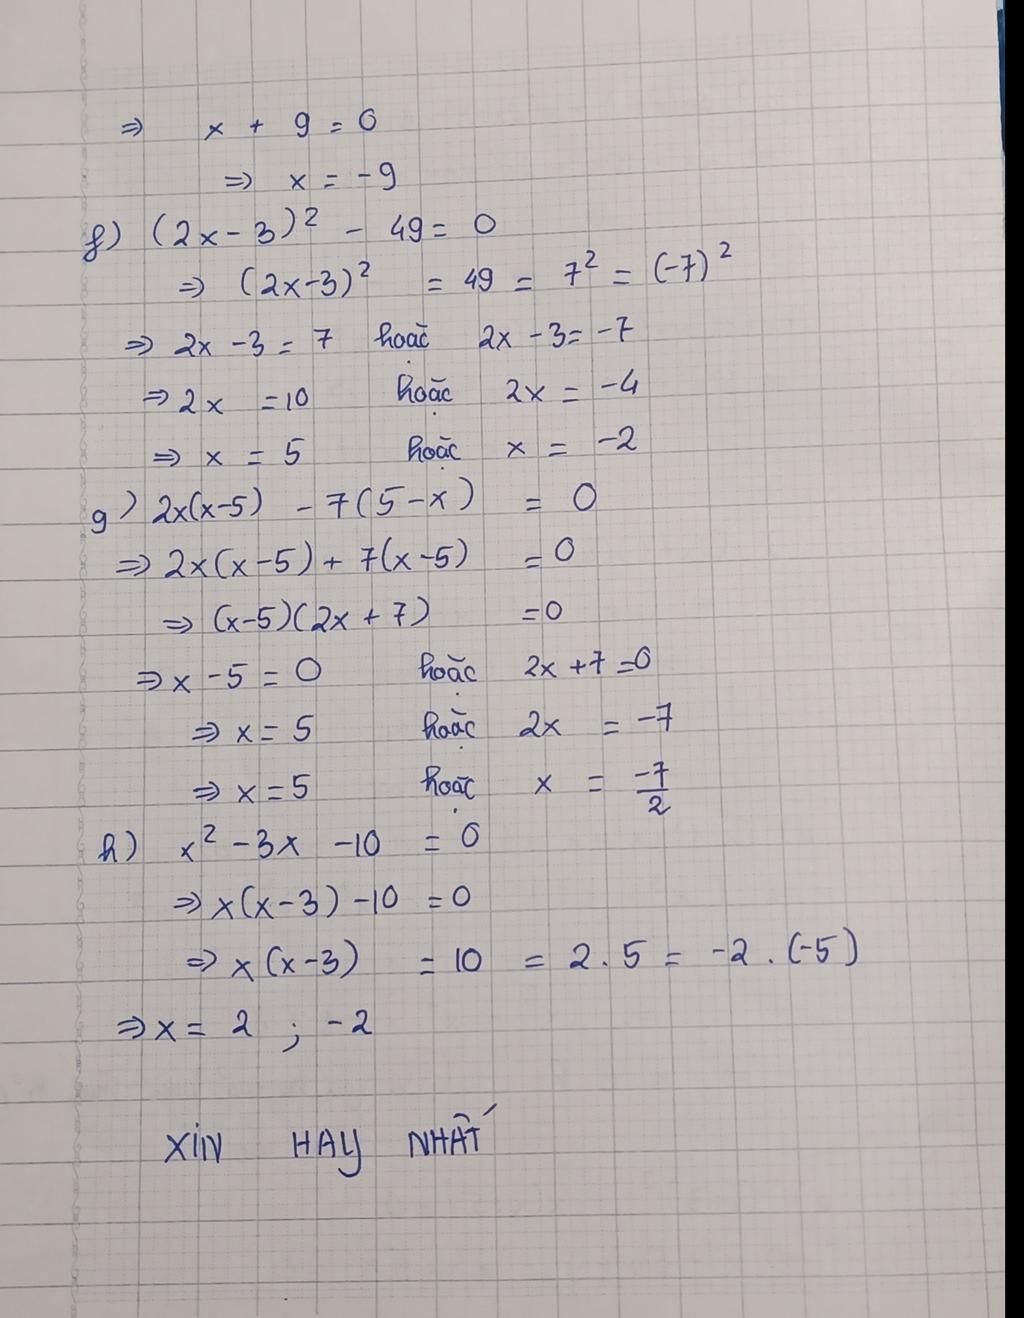 ⇒ x + 9 = 0
⇒ x = -9
f) (2x - 3)² - 49 = 0
⇒ (2x-3)² = 49 = 7² = (-7)²
⇒ 2x - 3 = 7 hoặc 2x - 3 = -7
⇒ 2x = 10 hoặc 2x = -4
⇒ x = 5 hoặc x = -2
g) 2x(x-5) - 7(5-x) = 0
⇒ 2x(x-5) + 7(x-5) = 0
⇒ (x-5)(2x + 7) = 0
⇒ x - 5 = 0 hoặc 2x + 7 = 0
⇒ x = 5 hoặc 2x = -7
⇒ x = 5 hoặc x = -7/2
h) x² - 3x - 10 = 0
⇒ x(x-3) - 10 = 0
⇒ x(x-3) = 10 = 2 . 5 = -2 . (-5)
⇒ x = 2 ; -2
XIN HAY NHẤT